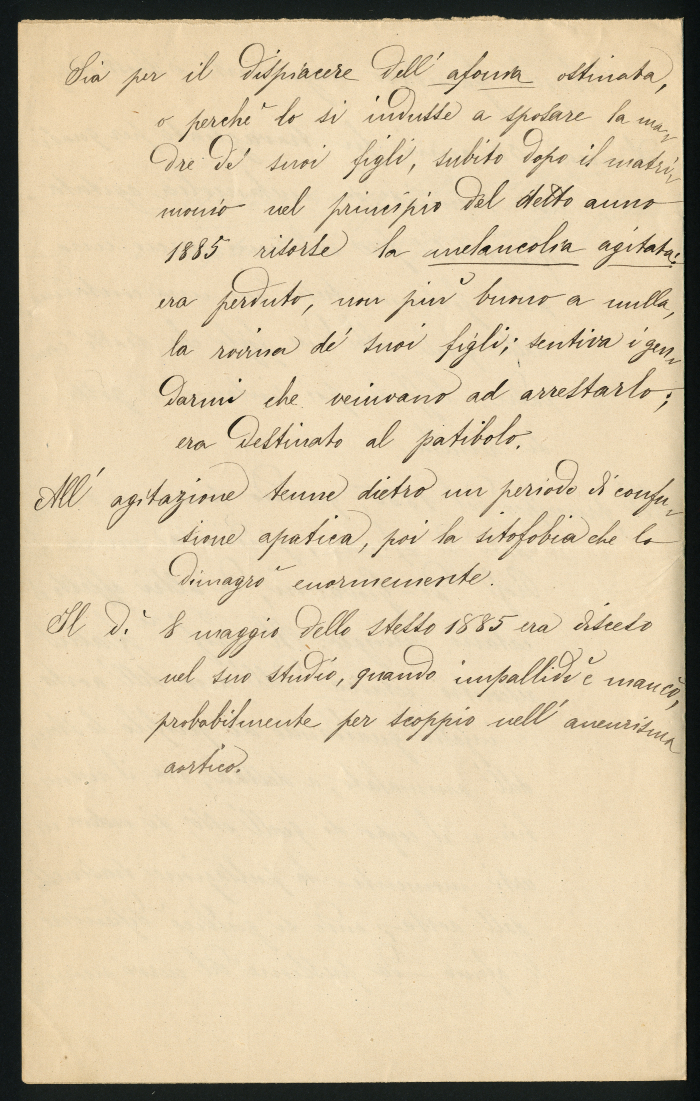 Sia per il dispiacere dell' afonia ostinata,
o perchè lo si indusse a sposare la ma-
dre de' suoi figli, subito dopo il matri-
monio nel principio del detto anno
1885 risorse la melancolia agitata:
era perduto, non più buono a nulla,
la roina de' suoi figli; sentiva i gen-
darmi che venivano ad arrestarlo;
era destinato al patibolo.
All' agitazione tenne dietro un periodo di confu-
sione apatica, poi la sitofobia che lo
dimagrò enormemente.
Il dì 8 maggio dello stesso 1885 era disceso
nel suo studio, quando impallidì e mancò,
probabilmente per scoppio nell' aneurisma
aortico.